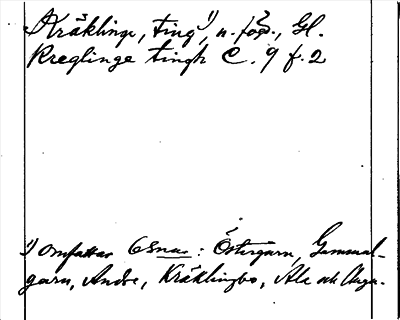 Kräklinge, ting¹⁾, n. , Gl.
Kreglinge tingh C. 9 f. 2
¹⁾ Omfattar 6 snar: Östergarn, Gammal-
garn, Ardre, Kräklingbo, Ala och Anga.